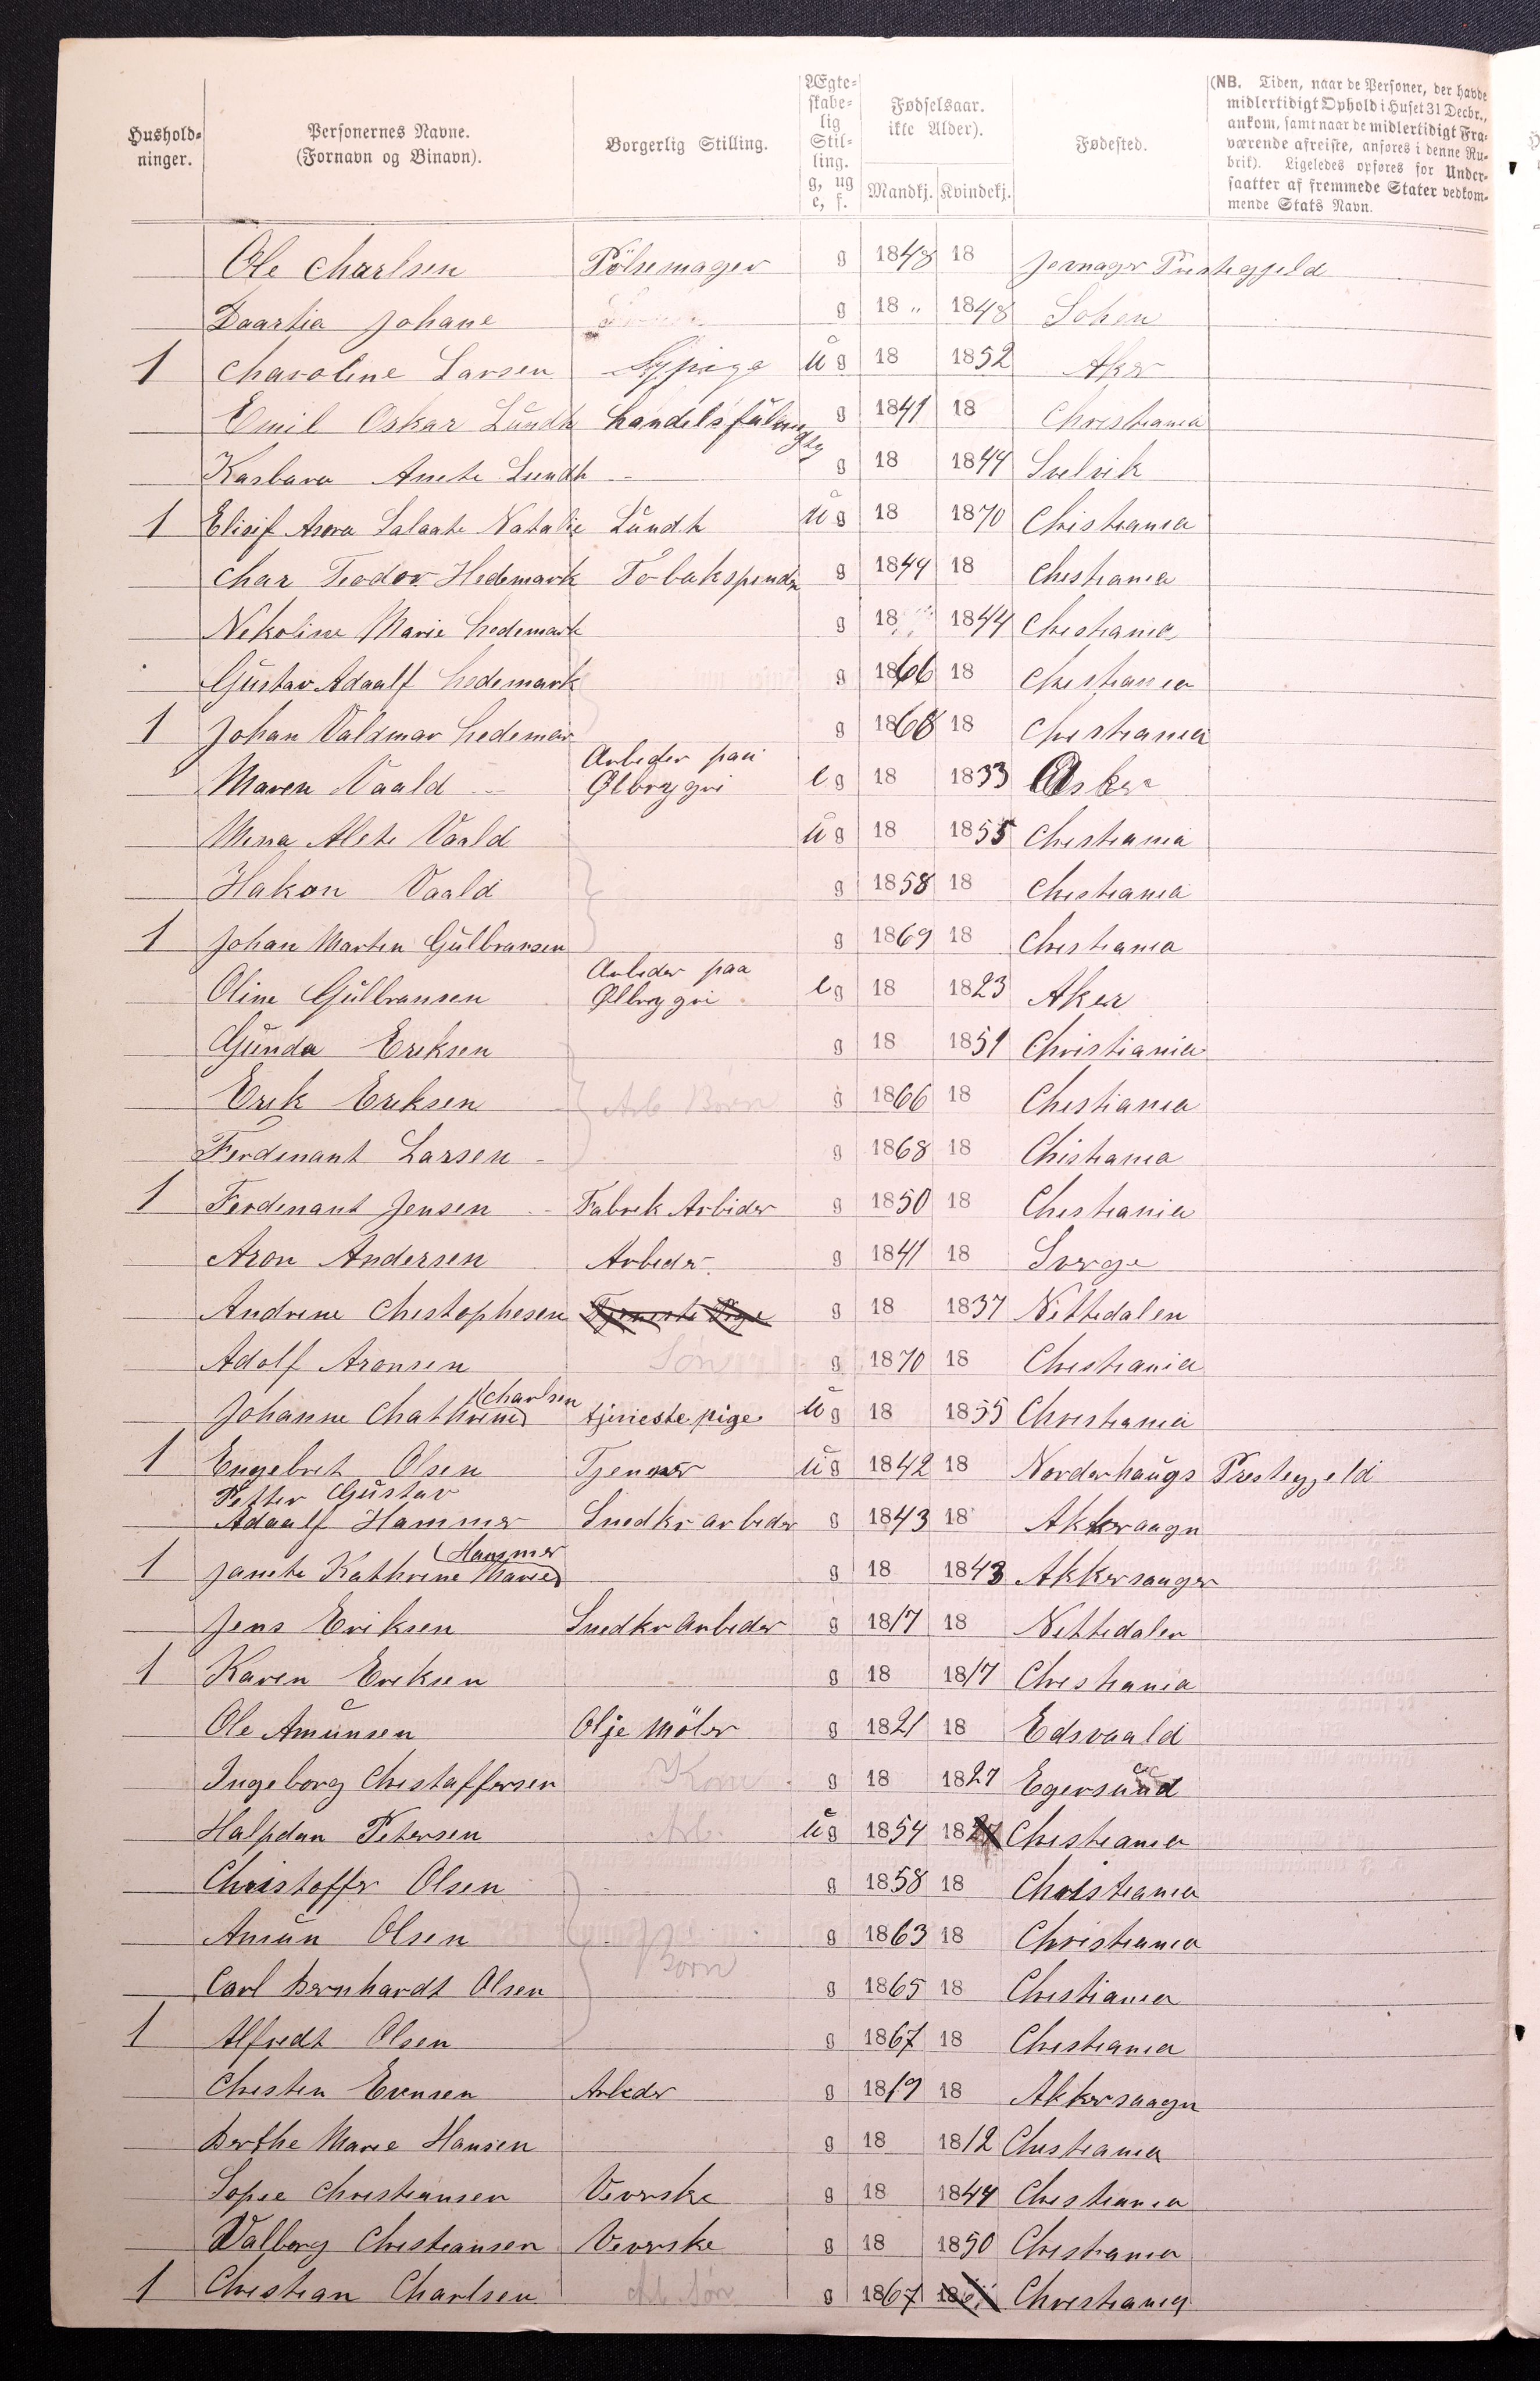 Hushold-
ninger.
Personernes Navne.
(Fornavn og Binavn).
Borgerlig Stilling.
Ægte-
skabe-
lig
Stil-
ling.
g, ug
e, f.
Fødselsaar.
ikke Alder).
Mandkj. Kvindekj.
Fødested.
(NB. Tiden, naar de Personer, der havde
midlertidigt Ophold i Huset 31 Decbr.,
ankom, samt naar de midlertidigt Fra-
værende afreiste, anføres i denne Ru-
brik). Ligeledes opføres for Under-
saatter af fremmede Stater vedkom-
mende Stats Navn.
Ole Charlsen Pölsemager g 1848 18 Jevnager Prestegjeld
Daartia Johane g 18 " 1848 Sohen
1 Charoline Larsen Sypige u g 18 1852 Aker
Emil Oskar Lundh Handelsfulmegtig g 1841 18 Christiania
Karbara Anete Lundh g 18 1844 Svelvik
1 Elisif Asora Salaate Natalie Lundh u g 18 1870 Christiania
Char Teodor Hedemark Tobakspinder g 1844 18 Christiania
Nekoline Marie Hedemark g 18 1844 Christiania
Gustav Adaalf Hedemark g 1866 18 Christiania
1 Johan Valdmar Hedemar g 1868 18 Christiania
Arbeder paa
Maren Vaald Ølbryggri e g 18 1833 Asker
Mina Alete Vaald u g 18 1855 Christiania
Hakon Vaald g 1858 18 Christiania
1 Johan Marten Gulbransen g 1869 18 Christiania
Arbeder paa
Oline Gulbransen Ølbryggri e g 18 1823 Aker
Gunda Eriksen g 18 1851 Christiania
Erik Eriksen Arb Børn g 1866 18 Christiania
Ferdenant Larsen g 1868 18 Christiania
1 Ferdenant Jensen Fabrek Arbider g 1850 18 Christiania
Aron Andersen Arbeder g 1841 18 Sverge
Andrene Chestophesen Tjeneste Pige g 18 1837 Nittedalen
Adolf Aronsen Søn g 1870 18 Christiania
Charlsen
Johanne Chathrine tjeneste pige u g 18 1855 Christiania
1 Engebret Olsen Tjenner u g 1842 18 Norderhaugs Prestegjeld
Petter Gustav
Adaalf Hammer Snedkr arbeder g 1843 18 Akkeraagn
Hammer
1 Janete Kathrine Marie g 18 1843 Akkersauger
Jens Eriksen Snedkr Arbeder g 1817 18 Nittedalen
1 Karen Eriksen g 18 1817 Christiania
Ole Amunsen Olje Möler g 1821 18 Edsvaald
Ingeborg Chestaffersen Kone g 18 1827 Egersund
Halpdan Petersen Arb. u g 1854 1827 Christiania
Christoffr Olsen g 1858 18 Christiania
Amun Olsen g 1863 18 Christiania
Børn
Carl Bernhardt Olsen g 1865 18 Christiania
1 Alfredt Olsen g 1867 18 Christiania
Chresten Evensen Arbeder g 1819 18 Akkersaagn
Berthe Marie Hansen g 18 1812 Christiania
Sopee Christiansen Veverske g 18 1844 Christiania
Valborg Christiansen Veverske g 18 1850 Christiania
1 Chrestian Charlsen g 1867 18 Christiania